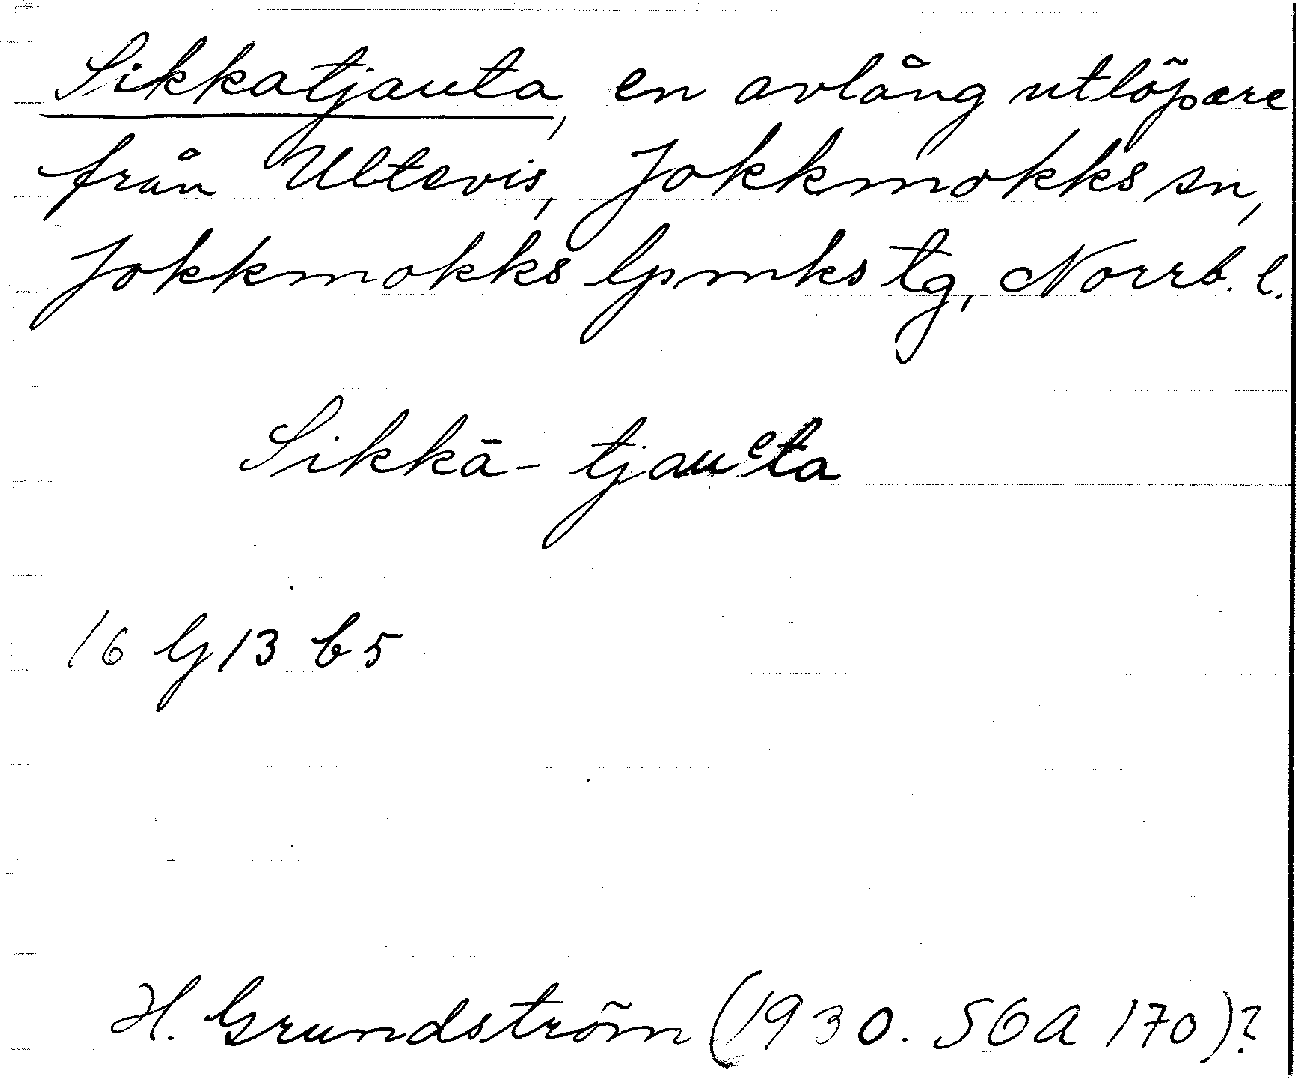 Sikkatjauta, en avlång utlöpare
från Ultevis, Jokkmokks sn,
Jokkmokks lpmks tg, Norrb. l.
Sikkā- tjauᵉta
16 G 13 b 5
H. Grundström (1930. SOA 170)?